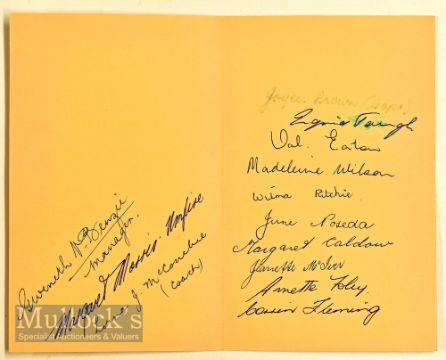 Gweneth Benzie
Manager.
Margaret Morris. Umpire
J. McConchie
(coach)
Joyce Brown (Capt)
Val. Eaton
Madeleine Wilson
Wilma Ritchie.
June Noseda
Margaret Caldow
Annette Foley.
Fleming
Mullock's
Specialist Auctioneers & Valuers